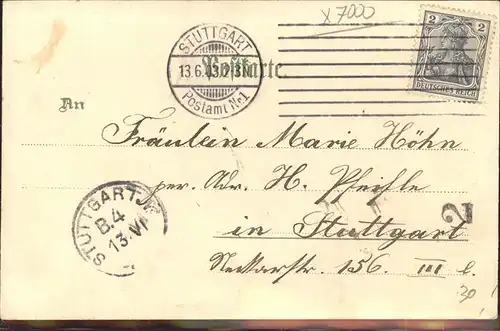 x 7000
STUTTGART
13.6.03. 12-1 N.
Postamt No 1
2 2
DEUTSCHES REICH
Postkarte.
An
Fräulein Marie Höhn
per. Adr. H. Pfeifle
in Stuttgart
Neckarstr. 156. III l.
STUTTGART
B.4
13.VI
2
30